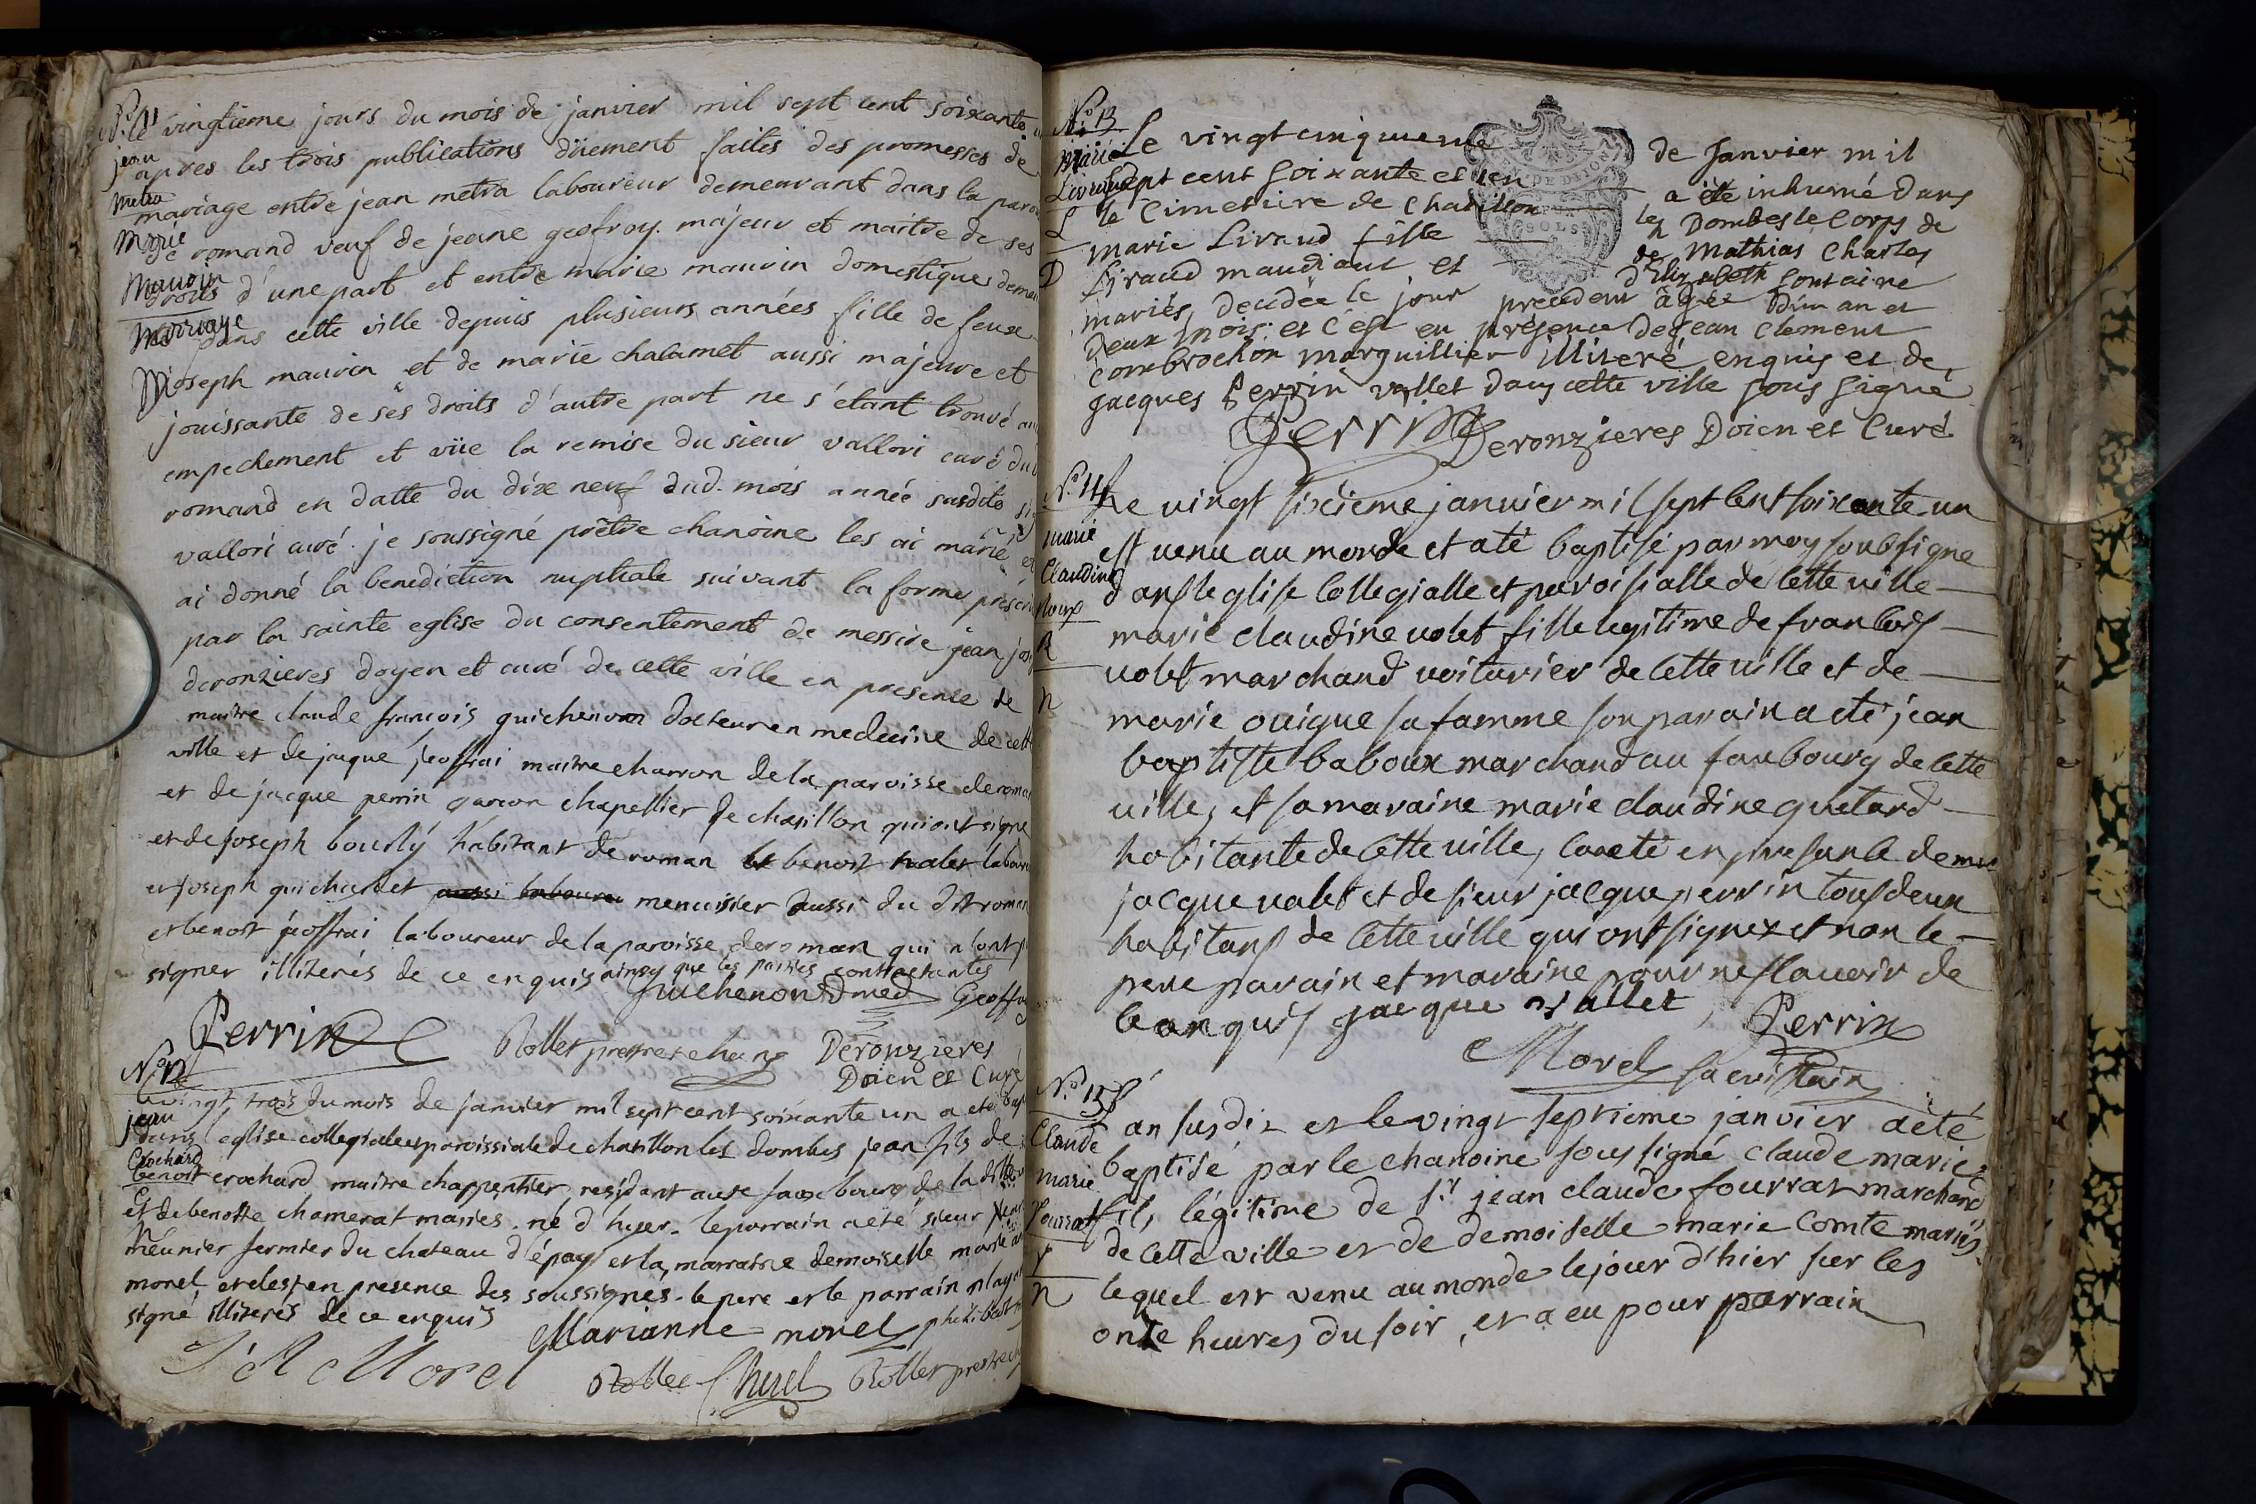 N.° 11
le vingtieme jours du mois de janvier mil sept cent soixante
jean
apres les trois publications düement faites des promesses de
metra
mariage entre jean metra laboureur demeurant dans la paroi
marie
de romand veuf de jeane geofroy majeur et maitre de ses
mauvin
droits d'une part et entre marie mauvin domestique demeu
Marriage
dans cette ville depuis plusieurs années fille de feux
M
joseph mauvin et de marie chalamet aussi majeure et
jouissante de ses droits d'autre part ne s'étant trouvé au
empechement et vüe la remise du sieur vallori curé du
romand en datte du dixe neuf dud. mois année susdite
vallori curé. je soussigné prêtre chanoine les ai marié et
ai donné la benediction nuptiale suivant la forme prescri
par la sainte eglise du consentement de messire jean jos
deronzieres doyen et curé de cette ville en presence de
maitre claude francois guichenon docteur en medecine de cett
ville et de jaque jeoffrai maitre charron de la paroisse de roman
et de jacque perrin garcon chapellier de chatillon qui ont signé
et de joseph bourly habitant de roman benoit labou
et joseph guichardet aussi laboureu menuisier aussi du dit roman
et benoit jeoffrai laboureur de la paroisse de roman qui n'ont
signer illiterés de ce enquis ainsy que les parties contractantes
Guichenon D med Geoffray
Perrin Rollet prestre chano Deronzieres
Doien et Curé
N.° 12
le vingt trois du mois de janvier mil sept cent soixante un a eté bapt
jean
dans l'eglise collegiale et paroissiale de chatillon les dombes jean fils de
Crochard
benoit crochard maitre charpentier residant aux faux bourg de la ditte
C
et de benoite chamerat mariés. né d'hyer. le parrain a été sieur
meunier fermier du chateau d'épay et la marraine demoiselle marie
morel, et c'est en presence des soussignés. le pere et le parrain n'aya
signé illiterés de ce enquis
Marianne morel
Morel Rollet prestre

N.° 13
Le vingt cinquieme de Janvier mil
marie
Livraud
sept cent soixante et un a été inhumé dans
L
le Cimetiere de Chatillon les Dombes le Corps de
marie Livraud fille de Mathias Charles
D
Livraud maudiant et d'Elizabeth Fontaine
mariés, decedée le jour precedent âgée d'un an et
deux mois. et c'est en présence de Jean Clement
Combrochon marguillier illiteré enquis et de
Jacques Perrin vallet dans cette ville sous signé
Perrin Deronzieres Doien et Curé
N.° 14
Le vingt sixieme janvier mil sept cent soixante un
marie
est venu au monde et a té baptisé par moy soubsigne
Claudine
dans leglise Collegialle et paroisialle de Cette ville
marie claudine volet fille legitime de francois
volet marchand voiturier de Cette ville et de
n
marie ouigue sa famme son parain a eté jean
baptiste baboux marchand au faubourg de Cette
ville, et sa maraine marie claudine quetand
habitante de Cette ville, la eté en presance de
jacque valet et de sieur jacque perrin tous deux
habitans de Cette ville qui ont signez et non le
pere parain et maraine pour ne scavoir de
ce enquis jacque vallet, Perrin
Morel sacristain
N.° 15
L'an susdit et le vingt septieme janvier a été
Claude
baptisé par le chanoine sous signé claude marie
marie
Fourrat
fils légitime de sr. jean claude fourrat marchand
de cette ville et de demoiselle marie Comte mariés
f
lequel est venu au monde le jour d'hier sur les
n
onze heures du soir, et a eu pour parrain